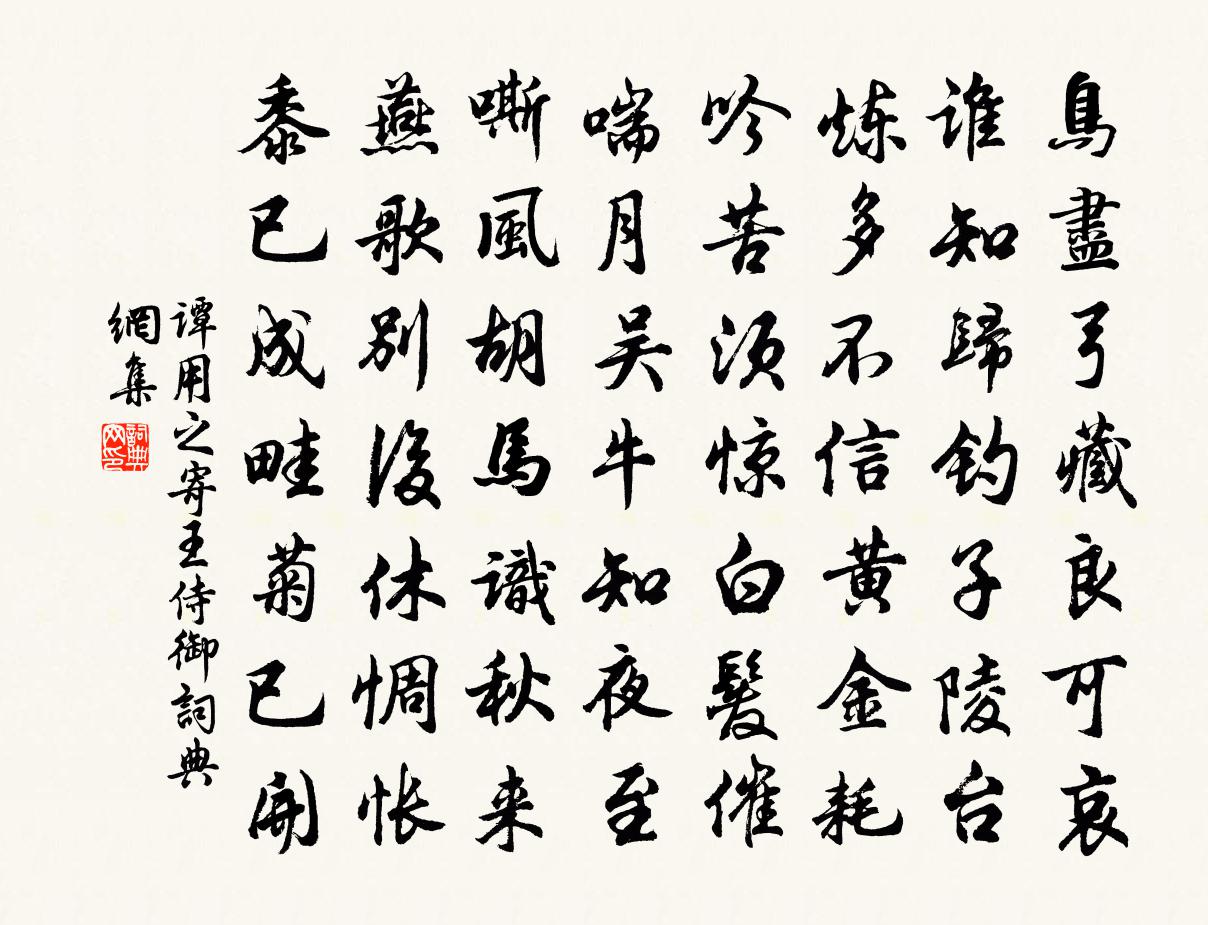 鳥盡弓藏良可哀
谁知歸钓子陵台
炼多不信黄金耗
吟苦须惊白髮催
喘月吴牛知夜至
嘶風胡馬識秋来
燕歌别後休惆怅
黍已成畦菊已開
谭用之寄王侍御詞典
網集
詞典
网印